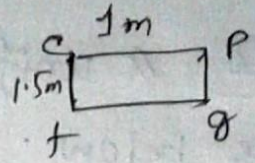 1 m
C P
1.5m
f g